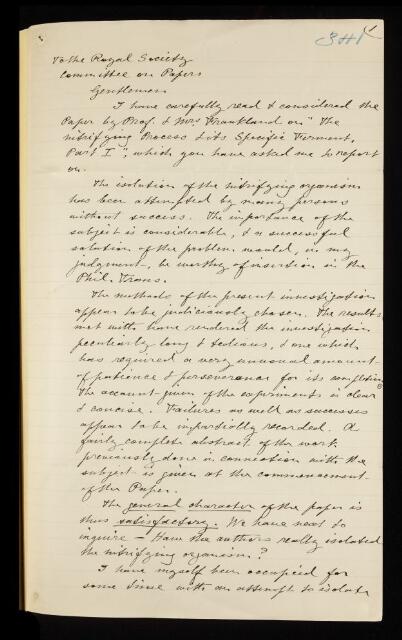 341
To the Royal Society
Committee on Papers
Gentlemen
I have carefully read & considered the
Paper by Prof. & Mrs Frankland on "The
nitrifying Process & its Specific Ferment,
Part I", which you have asked me to report
on.
The isolation of the nitrifying organism
has been attempted by many persons
without success. The importance of the
subject is considerable, & a successful
solution of the problem would, in my
judgment, be worthy of insertion in the
Phil. Trans.
The methods of the present investigation
appear to be judiciously chosen. The results
met with have rendered the investigation
peculiarly long & tedious, & one which
has required a very unusual amount
of patience & perseverance for its completion.
The account given of the experiments is clear
& concise. Failures as well as successes
appear to be impartially recorded. A
fairly complete abstract of the work
previously done in connection with the
subject is given at the commencement
of the Paper.
The general character of the paper is
thus satisfactory. We have next to
inquire — Have the authors really isolated
the nitrifying organism?
I have myself been occupied for
some time with an attempt to isolate